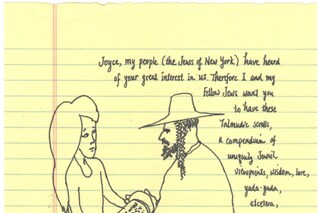 Joyce, my people (the Jews of New York) have heard
of your great interest in us. Therefore I and my
fellow Jews want you
to have these
Talmudic scrolls,
a compendium of
uniquely Jewish
viewpoints, wisdom, lore,
yada-yada,
etcetera,